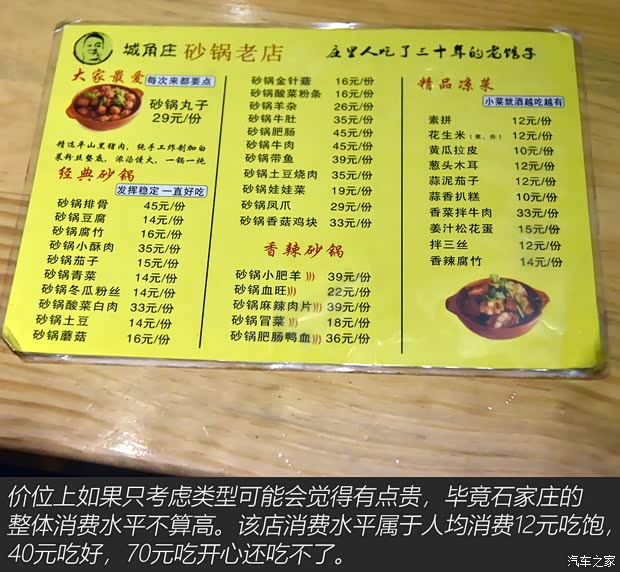 城角庄 砂锅老店
庄里人吃了三十年的老馆子
大家最爱 每次来都要点
砂锅丸子
29元/份
精选平山黑猪肉,纯手工炸制加白
菜粉丝垫底,浓汤慢火,一锅一炖
经典砂锅
发挥稳定 一直好吃
砂锅排骨 45元/份
砂锅豆腐 14元/份
砂锅腐竹 16元/份
砂锅小酥肉 35元/份
砂锅茄子 15元/份
砂锅青菜 14元/份
砂锅冬瓜粉丝 14元/份
砂锅酸菜白肉 33元/份
砂锅土豆 14元/份
砂锅蘑菇 16元/份
砂锅金针菇 16元/份
砂锅酸菜粉条 16元/份
砂锅羊杂 26元/份
砂锅牛肚 35元/份
砂锅肥肠 45元/份
砂锅牛肉 45元/份
砂锅带鱼 39元/份
砂锅土豆烧肉 35元/份
砂锅娃娃菜 19元/份
砂锅凤爪 29元/份
砂锅香菇鸡块 33元/份
香辣砂锅
砂锅小肥羊 39元/份
砂锅血旺 22元/份
砂锅麻辣肉片 39元/份
砂锅冒菜 18元/份
砂锅肥肠鸭血 36元/份
精品凉菜
小菜就酒越吃越有
素拼 12元/份
花生米(煮、炸) 12元/份
黄瓜拉皮 10元/份
葱头木耳 12元/份
蒜泥茄子 12元/份
蒜香扒糕 10元/份
香菜拌牛肉 33元/份
姜汁松花蛋 15元/份
拌三丝 12元/份
香辣腐竹 14元/份
价位上如果只考虑类型可能会觉得有点贵,毕竟石家庄的
整体消费水平不算高。该店消费水平属于人均消费12元吃饱,
40元吃好,70元吃开心还吃不了。
汽车之家